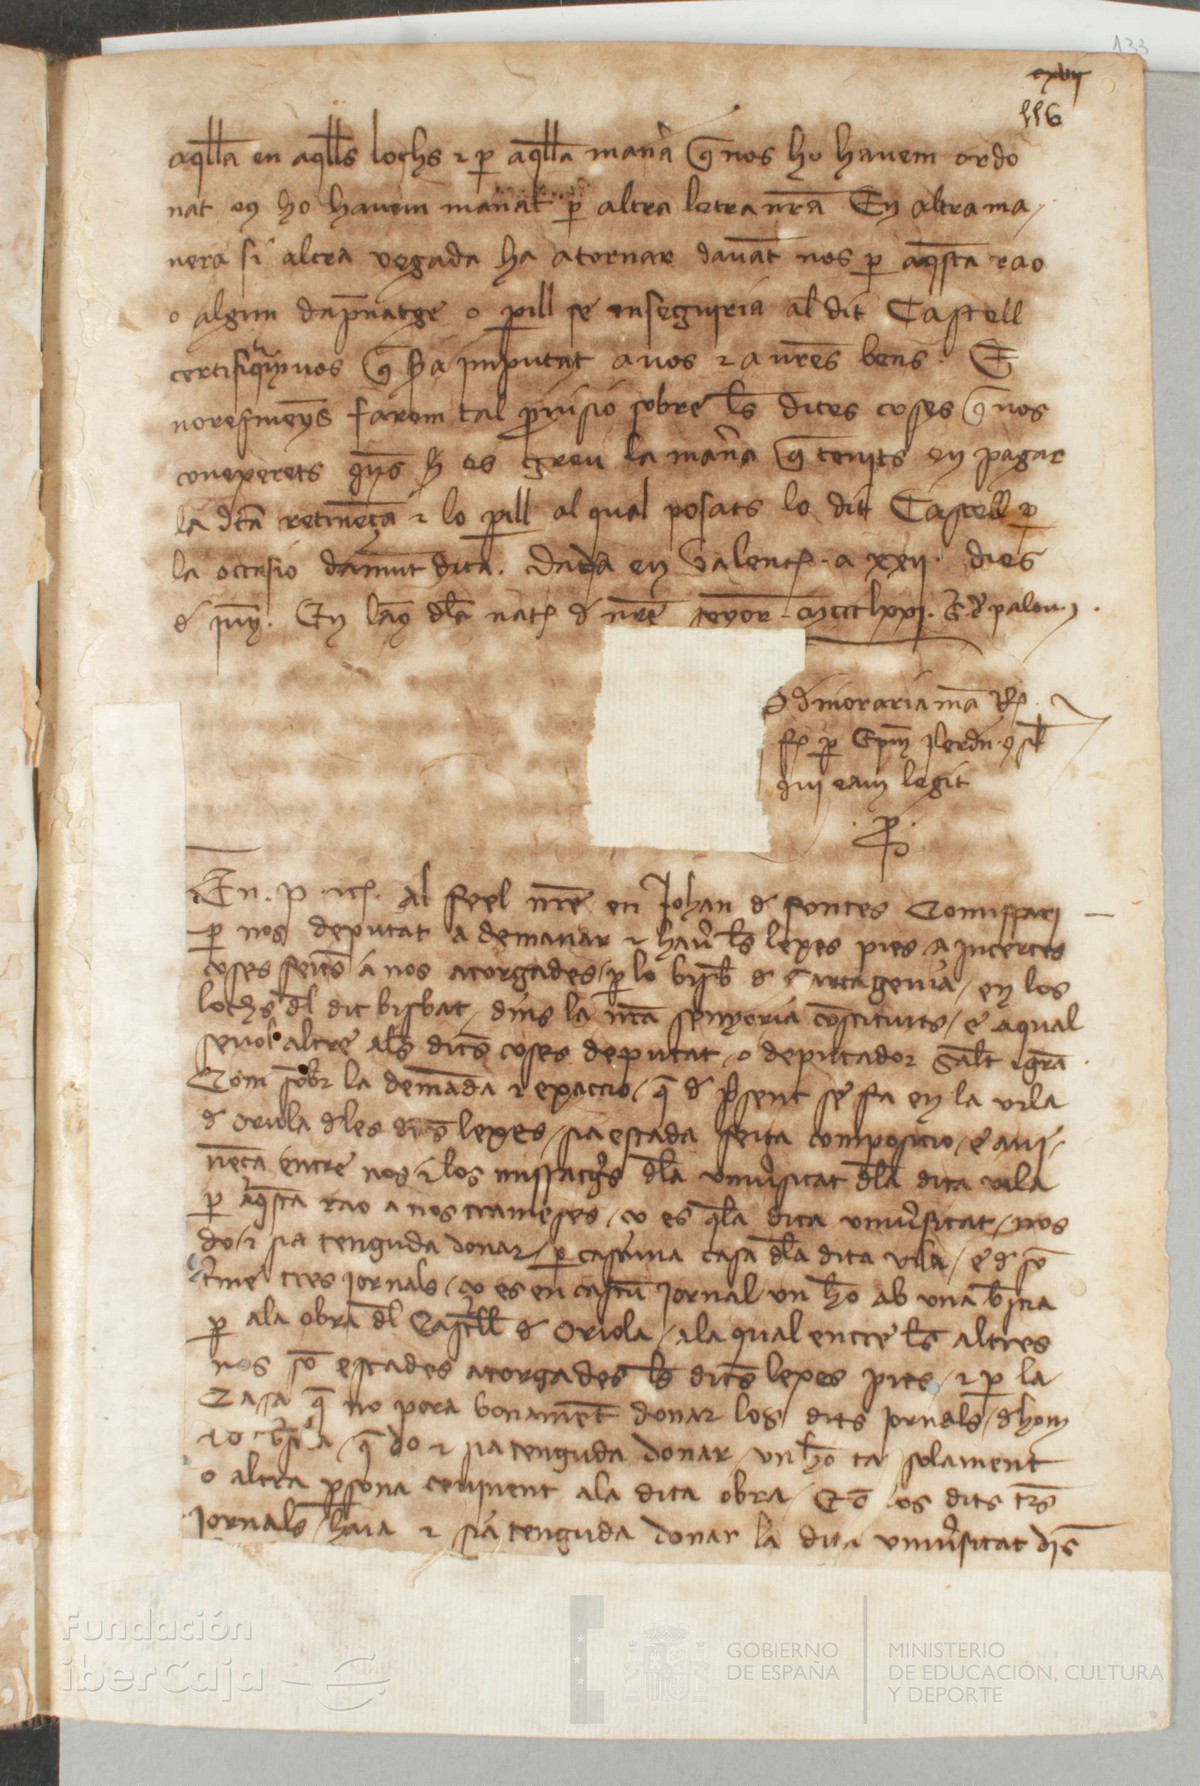 133
cxvij
116
aqlla en aqlls lochs & p aqlla mana q nos ho havem ordo
nat en ho havem manat p altra letra nra En altra ma
nera si altra vegada ha a tornar davant nos p aqsta rao
o algun dapnatge o pill se enseguiria al dit Castell
certifiquivos q sia imputat a vos & a vres bens. E
noresmenys farem tal provisio sobre ls dites coses q nos
conexerets quns h es greu la mana q tenits en pagar
la dta retinença & lo pill al qual posats lo dit Castell p
la occasio damunt dita. Dada en Valent. a xxii. dies
d juny. En lany dla nat d nre senyor. mccclxxvi.
d inoraria ma R
f p Epm Ilerdn
qui eam legit
.p.
En. p. Al feel nre en Johan d fontes Comissari
p nos deputat a demanar & haver ls lexes pies a incertes
coses feites a nos atorgades p lo bisb d Cartagenia en los
lochs dl dit bisbat dins la nra senyoria constituits e a qual
sevol altre als dits coses deputat o deputador Salt & gra
Com sobr la demanda & exaccio q d present se fa en la vila
d Oriola dles dits lexes sia estada feita composicio e avi
nença entre nos & los missatgs dla universitat dla dita vila
p aqsta rao a nos trameses co es qla dita universitat nos
do & sia tenguda donar p cascuna casa dla dita vila e d so
terme tres jornals co es en cascu jornal un ho ab una bstia
p ala obra dl Castell d Oriola ala qual entre ls altres
nos so estades atorgades ls dits lexes pies & p la
Casa q no pora bonament donar los dits jornals dhom
& d bstia q do & sia tenguda donar un ho ta solament
o altra psona covinent ala dita obra E los dits trs
jornals haia & sia tenguda donar la dita universitat dis
Fundación
iberCaja
GOBIERNO
DE ESPAÑA
MINISTERIO
DE EDUCACIÓN, CULTURA
Y DEPORTE